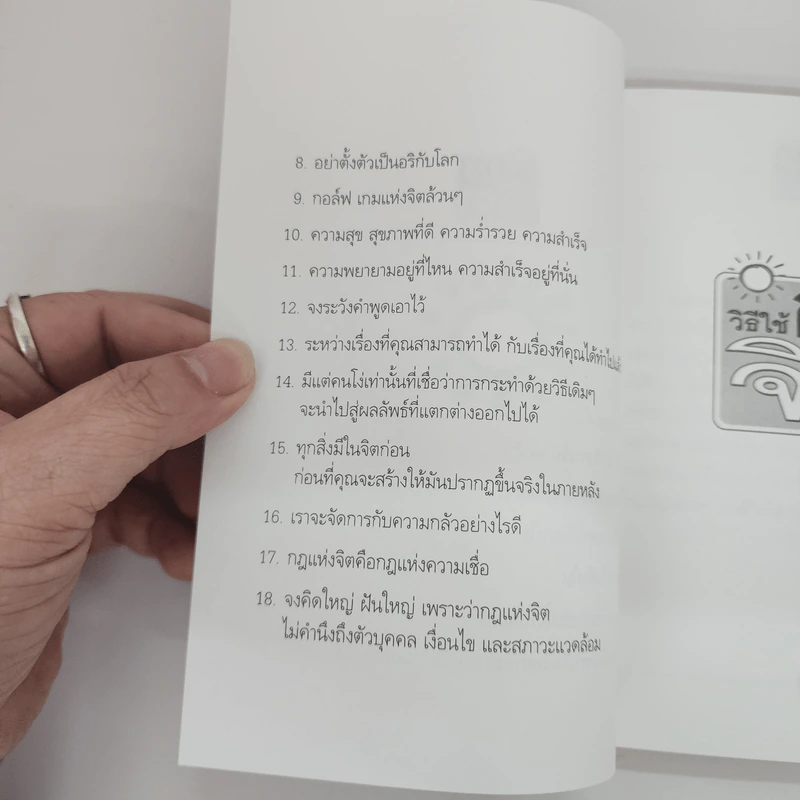 8. อย่าตั้งตัวเป็นอริกับโลก
9. กอล์ฟ เกมแห่งจิตล้วนๆ
10. ความสุข สุขภาพที่ดี ความร่ำรวย ความสำเร็จ
11. ความพยายามอยู่ที่ไหน ความสำเร็จอยู่ที่นั่น
12. จงระวังคำพูดเอาไว้
13. ระหว่างเรื่องที่คุณสามารถทำได้ กับเรื่องที่คุณได้ทำไปแล้ว
14. มีแต่คนโง่เท่านั้นที่เชื่อว่าการกระทำด้วยวิธีเดิมๆ
จะนำไปสู่ผลลัพธ์ที่แตกต่างออกไปได้
15. ทุกสิ่งมีในจิตก่อน
ก่อนที่คุณจะสร้างให้มันปรากฏขึ้นจริงในภายหลัง
16. เราจะจัดการกับความกลัวอย่างไรดี
17. กฎแห่งจิตคือกฎแห่งความเชื่อ
18. จงคิดใหญ่ ฝันใหญ่ เพราะว่ากฎแห่งจิต
ไม่คำนึงถึงตัวบุคคล เงื่อนไข และสภาวะแวดล้อม
วิธีใช้